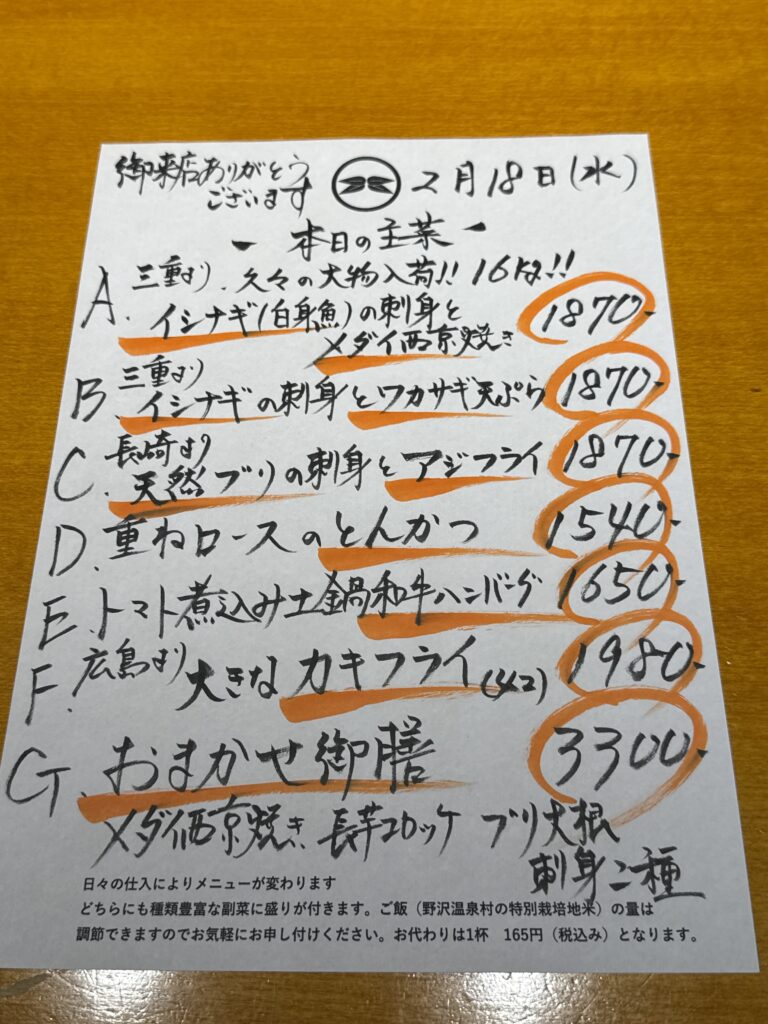 御来店ありがとう
ございます
2月18日(水)
- 本日の主菜 -
A. 三重より、久々の大物入荷!! 16kg!!
イシナギ(白身魚)の刺身と
メダイ西京焼き 1870-
B. 三重より
イシナギの刺身とワカサギ天ぷら 1870-
C. 長崎より
天然ブリの刺身とアジフライ 1870-
D. 重ねロースのとんかつ 1540-
E. トマト煮込み土鍋和牛ハンバーグ 1650-
F. 広島より 大きなカキフライ(4コ) 1980-
G. おまかせ御膳 3300-
メダイ西京焼き、長芋コロッケ ブリ大根
刺身二種
日々の仕入によりメニューが変わります
どちらにも種類豊富な副菜に盛りが付きます。ご飯（野沢温泉村の特別栽培地米）の量は
調節できますのでお気軽にお申し付けください。お代わりは1杯 165円（税込み）となります。